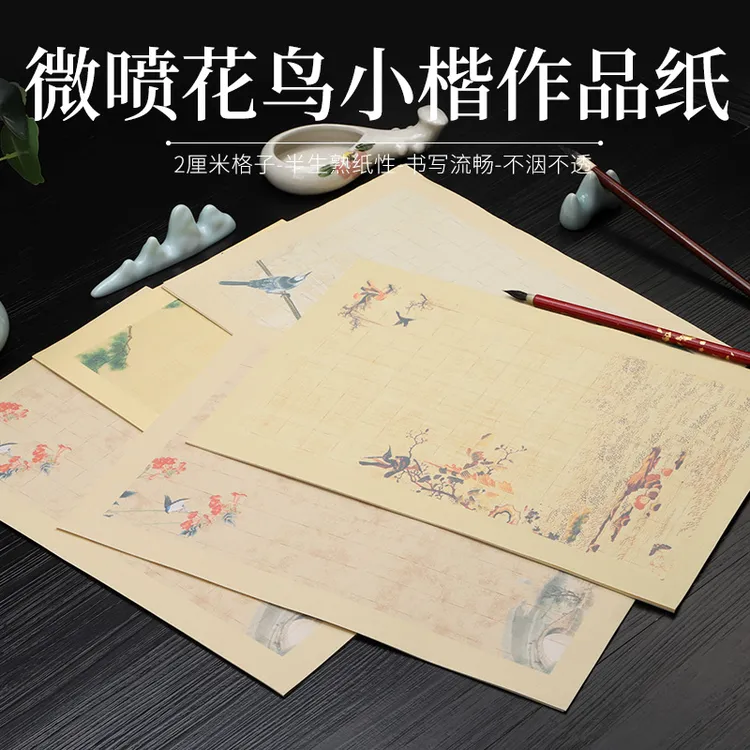 微喷花鸟小楷作品纸
2厘米格子-半生熟纸性-书写流畅-不洇不透